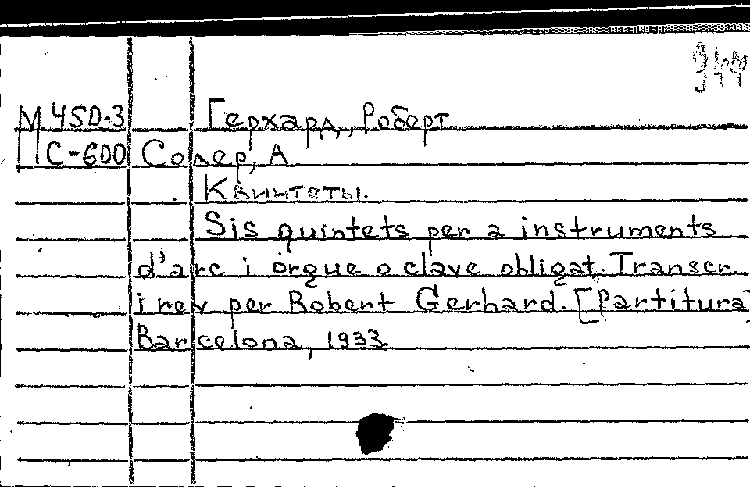 344
М 450-3 Герхард, Роберт
С-600 Солер, А.
Квинтеты.
Sis quintets per a instruments
d'arc i orgue o clave obligat. Transcr
i rev per Robert Gerhard. [Partitura]
Barcelona, 1933